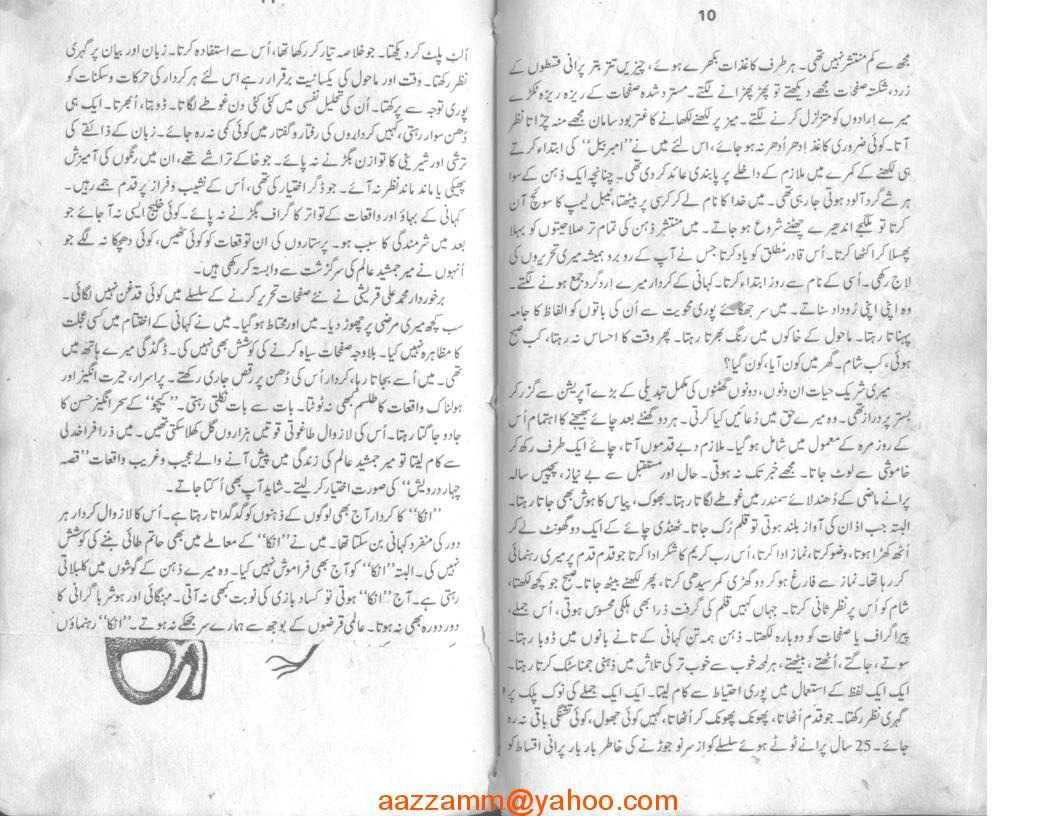 10
مجھ سے کم منتشر نہیں تھی۔ ہر طرف کاغذات بکھرے ہوئے، چیزیں تتر بتر پرانی قسطوں کے
زرد، شکستہ صفحات مجھے دیکھتے تو پھڑ پھڑانے لگتے۔ مسترد شدہ صفحات کے ریزہ ریزہ ٹکڑے
میرے ارادوں کو متزلزل کرنے لگتے۔ میز پر لکھنے لکھانے کا غتر بود سامان مجھے منہ چڑاتا نظر
آتا۔ کوئی ضروری کاغذ اِدھر اُدھر نہ ہو جائے، اس لئے میں نے "امبر بیل" کی ابتداء کرتے
ہی لکھنے کے کمرے میں ملازم کے داخلے پر پابندی عائد کر دی تھی۔ چنانچہ ایک ذہن کے سوا
ہر شے گرد آلود ہوتی جا رہی تھی۔ میں خدا کا نام لے کر کرسی پر بیٹھتا، ٹیبل لیمپ کا سوئچ آن
کرتا تو ملگجے اندھیرے چھٹنے شروع ہو جاتے۔ میں منتشر ذہن کی تمام تر صلاحیتوں کو بہلا
پھسلا کر اکٹھا کرتا۔ اُس قادرِ مُطلق کو یاد کرتا جس نے آپ کے رو برو ہمیشہ میری تحریروں کی
لاج رکھی۔ اُسی کے نام سے روز ابتداء کرتا۔ کہانی کے کردار میرے اِرد گرد جمع ہونے لگتے۔
وہ اپنی اپنی رُوداد سناتے۔ میں سر جھکائے پوری محویت سے اُن کی باتوں کو الفاظ کا جامہ
پہناتا رہتا۔ ماحول کے خاکوں میں رنگ بھرتا رہتا۔ پھر وقت کا احساس نہ رہتا، کب صبح
ہوئی، کب شام۔ گھر میں کون آیا، کون گیا؟
میری شریک حیات ان دنوں، دونوں گھٹنوں کی مکمل تبدیلی کے بڑے آپریشن سے گزر کر
بستر پر دراز تھی۔ وہ میرے حق میں دُعائیں کیا کرتی۔ ہر دو گھنٹے بعد چائے بھیجنے کا اہتمام اُس
کے روز مرہ کے معمول میں شامل ہو گیا۔ ملازم دبے قدموں آتا، چائے ایک طرف رکھ کر
خاموشی سے لوٹ جاتا۔ مجھے خبر تک نہ ہوتی۔ حال اور مستقبل سے بے نیاز، پچیس سالہ
پرانے ماضی کے دُھندلائے سمندر میں غوطے لگاتا رہتا۔ بھوک، پیاس کا ہوش بھی جاتا رہتا۔
البتہ جب اذان کی آواز بلند ہوتی تو قلم رُک جاتا۔ ٹھنڈی چائے کے ایک دو گھونٹ لے کر
اُٹھ کھڑا ہوتا، وضو کرتا، نماز ادا کرتا، اُس رب کریم کا شکر ادا کرتا جو قدم قدم پر میری رہنمائی
کر رہا تھا۔ نماز سے فارغ ہو کر دو گھڑی کمر سیدھی کرتا، پھر لکھنے بیٹھ جاتا۔ صبح جو کچھ لکھتا،
شام کو اُس پر نظر ثانی کرتا۔ جہاں کہیں قلم کی گرفت ذرا بھی ہلکی محسوس ہوتی، اُس جملے،
پیراگراف یا صفحات کو دوبارہ لکھتا۔ ذہن ہمہ تن کہانی کے تانے بانوں میں ڈوبا رہتا۔
سوتے، جاگتے، اُٹھتے، بیٹھتے، ہر لمحہ خوب سے خوب تر کی تلاش میں ذہنی جمناسٹک کرتا رہتا۔
ایک ایک لفظ کے استعمال میں پوری احتیاط سے کام لیتا۔ ایک ایک جملے کی نوک پلک پر
گہری نظر رکھتا۔ جو قدم اُٹھاتا، پھونک پھونک کر اُٹھاتا، کہیں کوئی جھول، کوئی تشنگی باقی نہ رہ
جائے۔ 25 سال پرانے ٹوٹے ہوئے سلسلے کو از سر نو جوڑنے کی خاطر بار بار پرانی اقساط کو
اُلٹ پلٹ کر دیکھتا۔ جو خلاصہ تیار کر رکھا تھا، اُس سے استفادہ کرتا۔ زبان اور بیان پر گہری
نظر رکھتا۔ وقت اور ماحول کی یکسانیت برقرار رہے اس لئے ہر کردار کی حرکات و سکنات کو
پوری توجہ سے پرکھتا۔ اُن کی تحلیل نفسی میں کئی کئی دن غوطے لگاتا۔ ڈوبتا، اُبھرتا۔ ایک ہی
دُھن سوار رہتی، کہیں کرداروں کی رفتار و گفتار میں کوئی کمی نہ رہ جائے۔ زبان کے ذائقے کی
ترشی اور شیرینی کا توازن بگڑنے نہ پائے۔ جو خاکے تراشے تھے، ان میں رنگوں کی آمیزش
پھیکی یا ماند ماند نظر نہ آئے۔ جو ڈگر اختیار کی تھی، اُس کے نشیب و فراز پر قدم جمے رہیں۔
کہانی کے بہاؤ اور واقعات کے تواتر کا گراف بگڑنے نہ پائے۔ کوئی خلیج ایسی نہ آ جائے جو
بعد میں شرمندگی کا سبب ہو۔ پرستاروں کی ان توقعات کو کوئی ٹھیس، کوئی دھچکا نہ لگے جو
اُنہوں نے میر جمشید عالم کی سرگزشت سے وابستہ کر رکھی ہیں۔
برخوردار محمد علی قریشی نے نئے صفحات تحریر کرنے کے سلسلے میں کوئی قدغن نہیں لگائی۔
سب کچھ میری مرضی پر چھوڑ دیا۔ میں اور محتاط ہو گیا۔ میں نے کہانی کے اختتام میں کسی عجلت
کا مظاہرہ نہیں کیا۔ بلاوجہ صفحات سیاہ کرنے کی کوشش بھی نہیں کی۔ ڈگڈگی میرے ہاتھ میں
تھی۔ میں اُسے بجاتا رہا، کردار اُس کی دُھن پر رقص جاری رکھتے۔ پراسرار، حیرت انگیز اور
ہولناک واقعات کا طلسم کبھی نہ ٹوٹتا۔ بات سے بات نکلتی رہتی۔ "کیچو" کے سحر انگیز حسن کا
جادو جاگتا رہتا۔ اُس کی لازوال طاغوتی قوتیں ہزاروں گل کھلا سکتی تھیں۔ میں ذرا فراخدلی
سے کام لیتا تو میر جمشید عالم کی زندگی میں پیش آنے والے عجیب و غریب واقعات "قصہ
چہار درویش" کی صورت اختیار کر لیتے۔ شاید آپ بھی اُکتا جاتے۔
"انکا" کا کردار آج بھی لوگوں کے ذہنوں کو گدگداتا رہتا ہے۔ اُس کا لازوال کردار ہر
دور کی منفرد کہانی بن سکتا تھا۔ میں نے "انکا" کے معاملے میں بھی حاتم طائی بننے کی کوشش
نہیں کی۔ البتہ "انکا" کو آج بھی فراموش نہیں کیا۔ وہ میرے ذہن کے گوشوں میں کلبلاتی
رہتی ہے۔ آج "انکا" ہوتی تو کساد بازاری کی نوبت بھی نہ آتی۔ مہنگائی اور ہوشربا گرانی کا
دور دورہ بھی نہ ہوتا۔ عالمی قرضوں کے بوجھ سے ہمارے سر جھکے نہ ہوتے۔ "انکا" رہنماؤں
aazzamm@yahoo.com